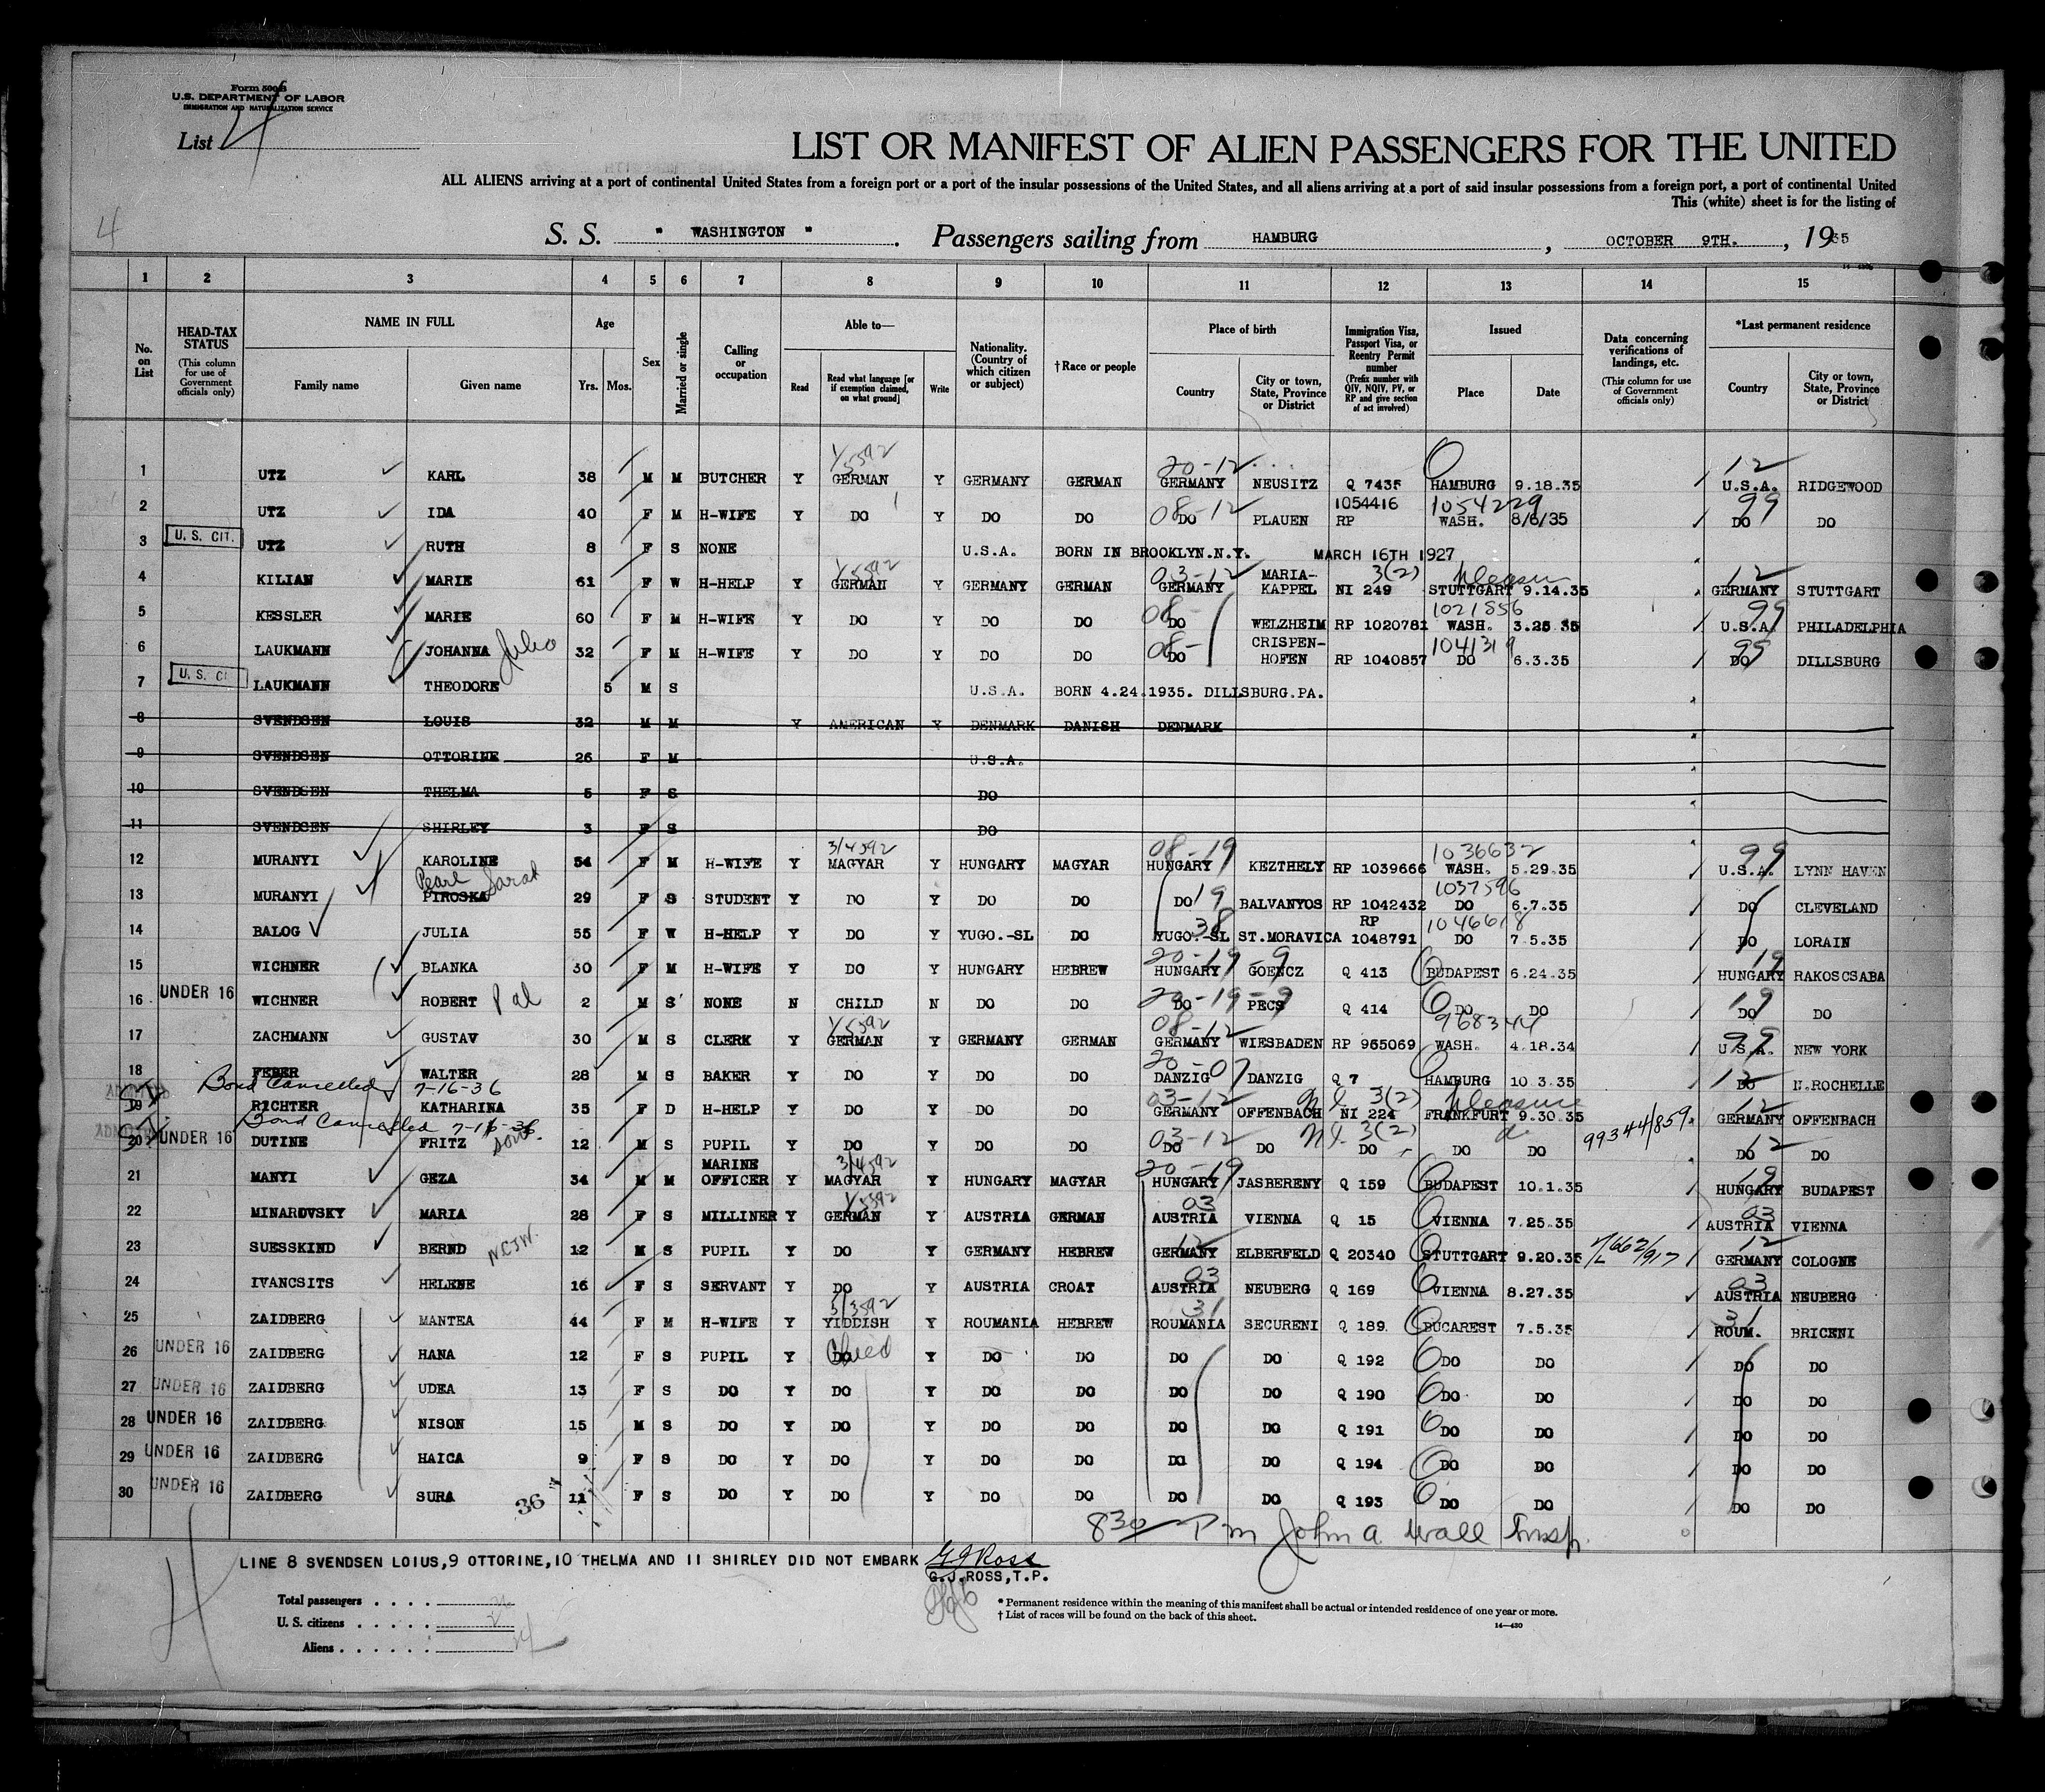 Form 500 B
U.S. DEPARTMENT OF LABOR
IMMIGRATION AND NATURALIZATION SERVICE
List 4
LIST OR MANIFEST OF ALIEN PASSENGERS FOR THE UNITED
ALL ALIENS arriving at a port of continental United States from a foreign port or a port of the insular possessions of the United States, and all aliens arriving at a port of said insular possessions from a foreign port, a port of continental United
This (white) sheet is for the listing of
4
S. S. " WASHINGTON ". Passengers sailing from HAMBURG, OCTOBER 9TH., 1935
1 2 3 4 5 6 7 8 9 10 11 12 13 14 15
No. on List
HEAD-TAX STATUS (This column for use of Government officials only)
NAME IN FULL Family name Given name
Age Yrs. Mos.
Sex
Married or single
Calling or occupation
Able to— Read Read what language [or if exemption claimed, on what ground] Write
Nationality. (Country of which citizen or subject)
†Race or people
Place of birth Country City or town, State, Province or District
Immigration Visa, Passport Visa, or Reentry Permit number (Prefix number with QIV, NQIV, PV, or RP and give section of act involved)
Issued Place Date
Data concerning verifications of landings, etc. (This column for use of Government officials only)
*Last permanent residence Country City or town, State, Province or District
1 UTZ KARL 38 M M BUTCHER Y GERMAN Y GERMANY GERMAN 20-12 GERMANY NEUSITZ Q 7435 HAMBURG 9.18.35 12 U.S.A. RIDGEWOOD
2 UTZ IDA 40 F M H-WIFE Y DO Y DO DO 08-12 DO PLAUEN 1054416 RP 1054229 WASH. 8/6/35 99 DO DO
3 U. S. CIT. UTZ RUTH 8 F S NONE U.S.A. BORN IN BROOKLYN.N.Y. MARCH 16TH 1927
4 KILIAN MARIE 61 F W H-HELP Y GERMAN Y GERMANY GERMAN 03-12 GERMANY MARIA-KAPPEL 3(2) NI 249 pleasure STUTTGART 9.14.35 12 GERMANY STUTTGART
5 KESSLER MARIE 60 F M H-WIFE Y DO Y DO DO 08- DO WELZHEIM RP 1020781 1021856 WASH. 3.25.35 99 U.S.A. PHILADELPHIA
6 LAUKMANN JOHANNA 32 F M H-WIFE Y DO Y DO DO 08- DO CRISPEN-HOFEN RP 1040857 1041319 DO 6.3.35 DO DILLSBURG
7 U. S. CI LAUKMANN THEODORE 5 M S U.S.A. BORN 4.24.1935. DILLSBURG.PA.
8 SVENDSEN LOUIS 32 M M Y AMERICAN Y DENMARK DANISH DENMARK
9 SVENDSEN OTTORINE 26 F M U.S.A.
10 SVENDSEN THELMA 5 F S DO
11 SVENDSEN SHIRLEY 3 F S DO
12 MURANYI KAROLINE 54 F M H-WIFE Y MAGYAR Y HUNGARY MAGYAR 08-19 HUNGARY KEZTHELY RP 1039666 1036632 WASH. 5.29.35 99 U.S.A. LYNN HAVEN
13 MURANYI PIROSKA Pearl Sarah 29 F S STUDENT Y DO Y DO DO DO 19 BALVANYOS RP 1042432 1037596 DO 6.7.35 DO CLEVELAND
14 BALOG JULIA 55 F W H-HELP Y DO Y YUGO.-SL DO 38 YUGO.-SL ST.MORAVICA RP 1048791 1046618 DO 7.5.35 DO LORAIN
15 WICHNER BLANKA 30 F M H-WIFE Y DO Y HUNGARY HEBREW 20-19-9 HUNGARY GOENCZ Q 413 BUDAPEST 6.24.35 19 HUNGARY RAKOSCSABA
16 UNDER 16 WICHNER ROBERT Pal 2 M S NONE N CHILD N DO DO 20-19-9 DO PECS Q 414 DO DO 19 DO DO
17 ZACHMANN GUSTAV 30 M S CLERK Y GERMAN Y GERMANY GERMAN 08-12 GERMANY WIESBADEN RP 965069 968344 WASH. 4.18.34 99 U.S.A. NEW YORK
18 FEBER WALTER 28 M S BAKER Y DO Y DO DO 20-07 DANZIG DANZIG Q 7 HAMBURG 10.3.35 12 DO N.ROCHELLE
Bond Cancelled 7-16-36
19 RICHTER KATHARINA 35 F D H-HELP Y DO Y DO DO 03-12 GERMANY OFFENBACH 3(2) NI 224 pleasure FRANKFURT 9.30.35 99344/859 12 GERMANY OFFENBACH
Bond Cancelled 7-16-36
20 UNDER 16 DUTINE FRITZ son 12 M S PUPIL Y DO Y DO DO 03-12 DO DO 3(2) DO DO DO 12 DO DO
21 MANYI GEZA 34 M M MARINE OFFICER Y MAGYAR Y HUNGARY MAGYAR 20-19 HUNGARY JASBERENY Q 159 BUDAPEST 10.1.35 19 HUNGARY BUDAPEST
22 MINAROVSKY MARIA 28 F S MILLINER Y GERMAN Y AUSTRIA GERMAN 03 AUSTRIA VIENNA Q 15 VIENNA 7.25.35 03 AUSTRIA VIENNA
23 SUESSKIND BERND N.C.J.W. 12 M S PUPIL Y DO Y GERMANY HEBREW 12 GERMANY ELBERFELD Q 20340 STUTTGART 9.20.35 12 GERMANY COLOGNE
24 IVANCSITS HELENE 16 F S SERVANT Y DO Y AUSTRIA CROAT 03 AUSTRIA NEUBERG Q 169 VIENNA 8.27.35 03 AUSTRIA NEUBERG
25 ZAIDBERG MANTEA 44 F M H-WIFE Y YIDDISH Y ROUMANIA HEBREW 31 ROUMANIA SECURENI Q 189 BUCAREST 7.5.35 31 ROUM. BRICENI
26 UNDER 16 ZAIDBERG HANA 12 F S PUPIL Y DO Y DO DO DO DO Q 192 DO DO DO DO
27 UNDER 16 ZAIDBERG UDEA 13 F S DO Y DO Y DO DO DO DO Q 190 DO DO DO DO
28 UNDER 16 ZAIDBERG NISON 15 M S DO Y DO Y DO DO DO DO Q 191 DO DO DO DO
29 UNDER 16 ZAIDBERG HAICA 9 F S DO Y DO Y DO DO DO DO Q 194 DO DO DO DO
30 UNDER 16 ZAIDBERG SURA 11 F S DO Y DO Y DO DO DO DO Q 193 DO DO DO DO
36
830 Pm John A. Wall Insp.
LINE 8 SVENDSEN LOIUS,9 OTTORINE,10 THELMA AND 11 SHIRLEY DID NOT EMBARK G J Ross
G.J.ROSS,T.P.
Total passengers . . . .
U. S. citizens . . . . . 2
Aliens . . . . . . 24
* Permanent residence within the meaning of this manifest shall be actual or intended residence of one year or more.
† List of races will be found on the back of this sheet.
14—430